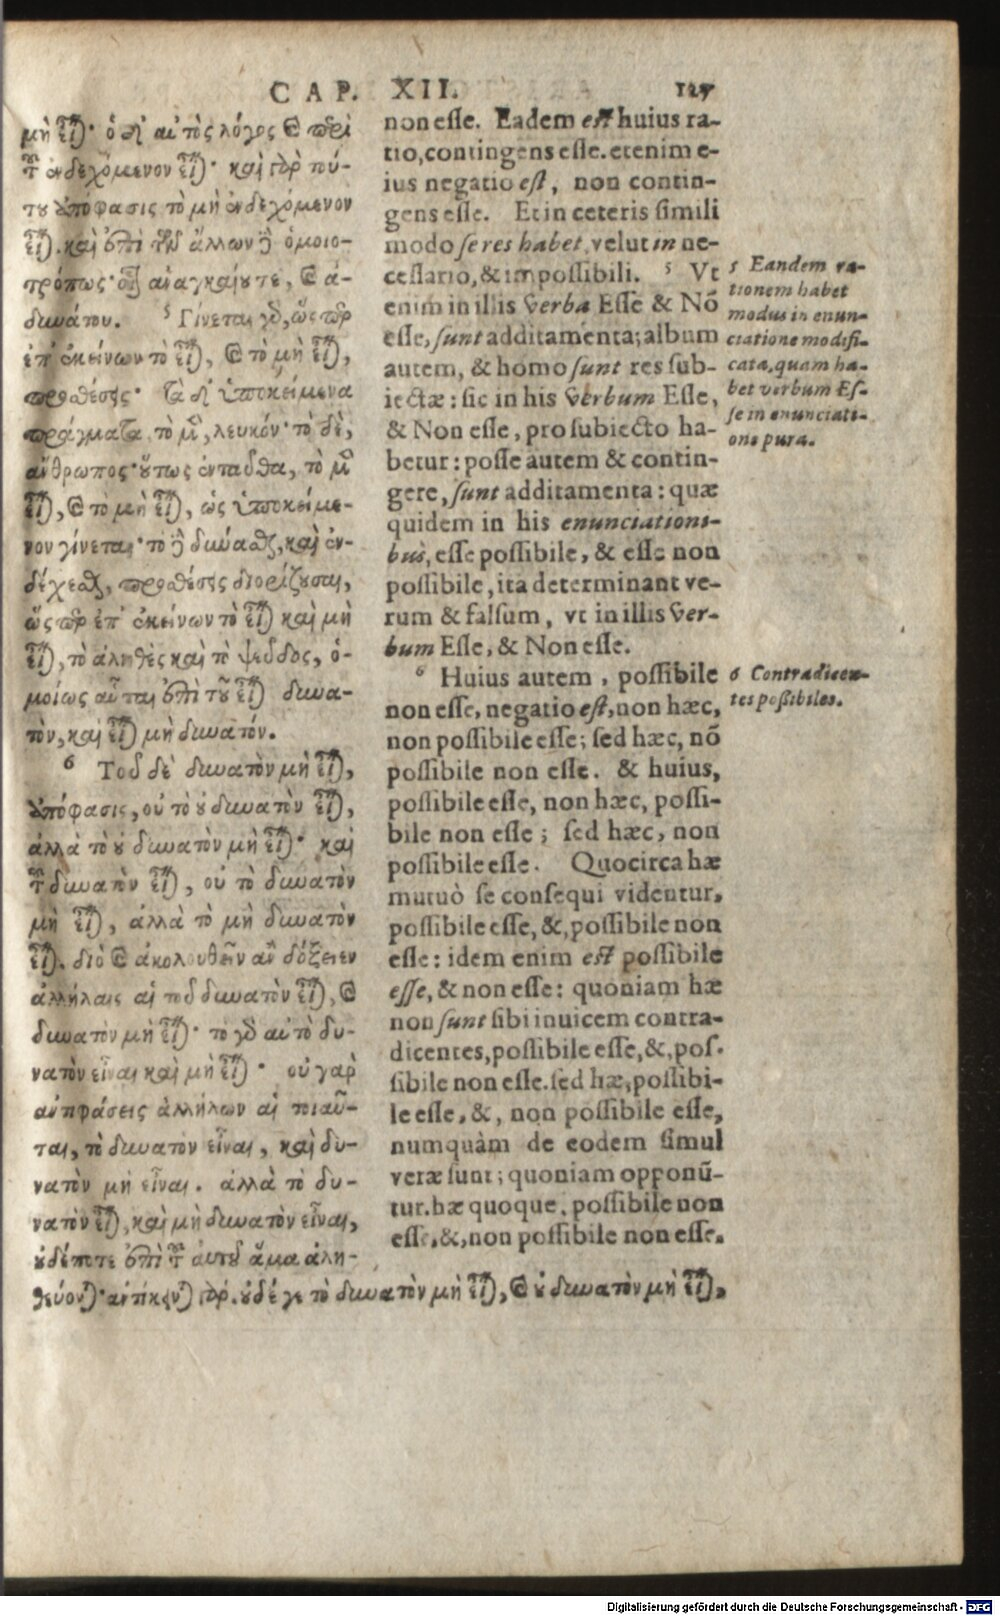 CAP. XII. 127
μὴ εἶναι· ὁ δ' αὐτὸς λόγος καὶ περὶ
τοῦ ἐνδεχόμενον εἶναι· καὶ γὰρ τού-
του ἀπόφασις τὸ μὴ ἐνδεχόμενον
εἶναι. καὶ ἐπὶ τῶν ἄλλων δὲ ὁμοιο-
τρόπως· οἷον ἀναγκαίου τε, καὶ ἀ-
δυνάτου. 5 Γίνεται γὰρ, ὥσπερ
ἐπ' ἐκείνων τὸ εἶναι, καὶ τὸ μὴ εἶναι,
προσθέσεις· τὰ δ' ὑποκείμενα
πράγματα, τὸ μὲν, λευκόν· τὸ δὲ,
ἄνθρωπος· οὕτως ἐνταῦθα, τὸ μὲν
εἶναι, καὶ τὸ μὴ εἶναι, ὡς ὑποκείμε-
νον γίνεται· τὸ δὲ δύνασθαι, καὶ ἐν-
δέχεσθαι, προσθέσεις διορίζουσαι,
ὥσπερ ἐπ' ἐκείνων τὸ εἶναι καὶ μὴ
εἶναι, τὸ ἀληθὲς καὶ τὸ ψεῦδος, ὁ-
μοίως αὗται ἐπὶ τοῦ εἶναι δυνα-
τὸν, καὶ εἶναι μὴ δυνατόν.
6 Τοῦ δὲ δυνατὸν μὴ εἶναι,
ἀπόφασις, οὐ τὸ οὐ δυνατὸν εἶναι,
ἀλλὰ τὸ οὐ δυνατὸν μὴ εἶναι· καὶ
τοῦ δυνατὸν εἶναι, οὐ τὸ δυνατὸν
μὴ εἶναι, ἀλλὰ τὸ μὴ δυνατὸν
εἶναι. διὸ καὶ ἀκολουθεῖν ἂν δόξειεν
ἀλλήλαις αἱ τοῦ δυνατὸν εἶναι, καὶ
δυνατὸν μὴ εἶναι· τὸ γὰρ αὐτὸ δυ-
νατὸν εἶναι καὶ μὴ εἶναι· οὐ γὰρ
ἀντιφάσεις ἀλλήλων αἱ τοιαῦ-
ται, τὸ δυνατὸν εἶναι, καὶ δυ-
νατὸν μὴ εἶναι. ἀλλὰ τὸ δυ-
νατὸν εἶναι, καὶ μὴ δυνατὸν εἶναι,
οὐδέποτε ἐπὶ τοῦ αὐτοῦ ἅμα ἀλη-
θεύονται· ἀντίκεινται γάρ. οὐδέ γε τὸ δυνατὸν μὴ εἶναι, καὶ οὐ δυνατὸν μὴ εἶναι,
non esse. Eadem est huius ra-
tio, contingens esse. etenim e-
ius negatio est, non contin-
gens esse. Et in ceteris simili
modo se res habet, velut in ne-
cessario, & impossibili. 5 Vt
enim in illis verba Esse & Nō
esse, sunt additamenta; album
autem, & homo sunt res sub-
iectæ: sic in his verbum Esse,
& Non esse, pro subiecto ha-
betur: posse autem & contin-
gere, sunt additamenta: quæ
quidem in his enunciationi-
bus, esse possibile, & esse non
possibile, ita determinant ve-
rum & falsum, vt in illis ver-
bum Esse, & Non esse.
6 Huius autem, possibile
non esse, negatio est, non hæc,
non possibile esse; sed hæc, nō
possibile non esse. & huius,
possibile esse, non hæc, possi-
bile non esse; sed hæc, non
possibile esse. Quocirca hæ
mutuò se consequi videntur,
possibile esse, &, possibile non
esse: idem enim est possibile
esse, & non esse: quoniam hæ
non sunt sibi inuicem contra-
dicentes, possibile esse, &, pos-
sibile non esse. sed hæ, possibi-
le esse, &, non possibile esse,
numquàm de eodem simul
veræ sunt; quoniam opponū-
tur. hæ quoque, possibile non
esse, &, non possibile non esse.
5 Eandem ra-
tionem habet
modus in enun-
ciatione modifi-
cata, quam ha-
bet verbum Es-
se in enunciati-
one pura.
6 Contradicen-
tes possibiles.
Digitalisierung gefördert durch die Deutsche Forschungsgemeinschaft - DFG